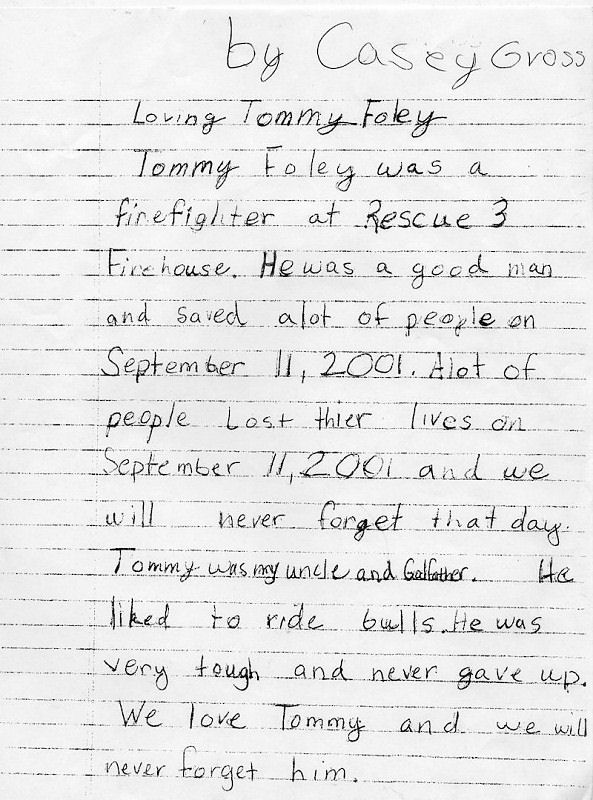 by Casey Gross
Loving Tommy Foley
Tommy Foley was a
firefighter at Rescue 3
Firehouse. He was a good man
and saved alot of people on
September 11, 2001. Alot of
people Lost thier lives on
September 11, 2001 and we
will never forget that day.
Tommy was my uncle and Godfather. He
liked to ride bulls. He was
very tough and never gave up.
We love Tommy and we will
never forget him.